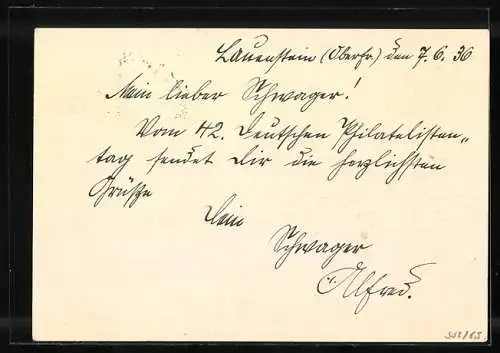 Lauenstein (Oberfr.) den 7.6.36
Mein lieber Schwager!
Vom 42. Deutschen Philatelisten„
tag sendet Dir die herzlichsten
Grüße
Dein
Schwager
Alfred.